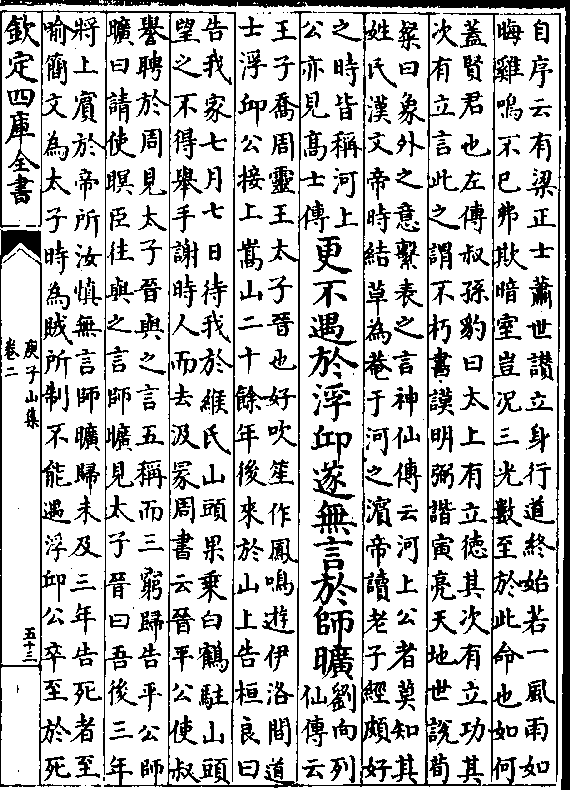 自序云有梁正士蕭世讃立身行道終始若一風雨如
晦雞鳴不已弗欺暗室豈况三光數至於此命也如何
蓋賢君也左傳叔孫豹曰太上有立徳其次有立功其
次有立言此之謂不朽書謨明弼諧寅亮天地世說荀
粲曰象外之意繫表之言神仙傳云河上公者莫知其
姓氏漢文帝時結草為菴于河之濵帝讀老子經頗好
之時皆稱河上
公亦見髙士傳
更不遇於浮邱遂無言於師曠
劉向列
仙傳云
王子喬周靈王太子晉也好吹笙作鳳鳴遊伊洛間道
士浮邱公接上嵩山二十餘年後來於山上告桓良曰
告我家七月七日待我於緱氏山頭果乘白鶴駐山頭
望之不得舉手謝時人而去汲冢周書云晉平公使叔
譽聘於周見太子晉與之言五稱而三窮歸告平公師
曠曰請使瞑臣往與之言師曠見太子晉曰吾後三年
將上賓於帝所汝慎無言師曠歸未及三年告死者至
喻簡文為太子時為賊所制不能遇浮邱公卒至於死
欽定四庫全書
庾子山集
卷二
五十三